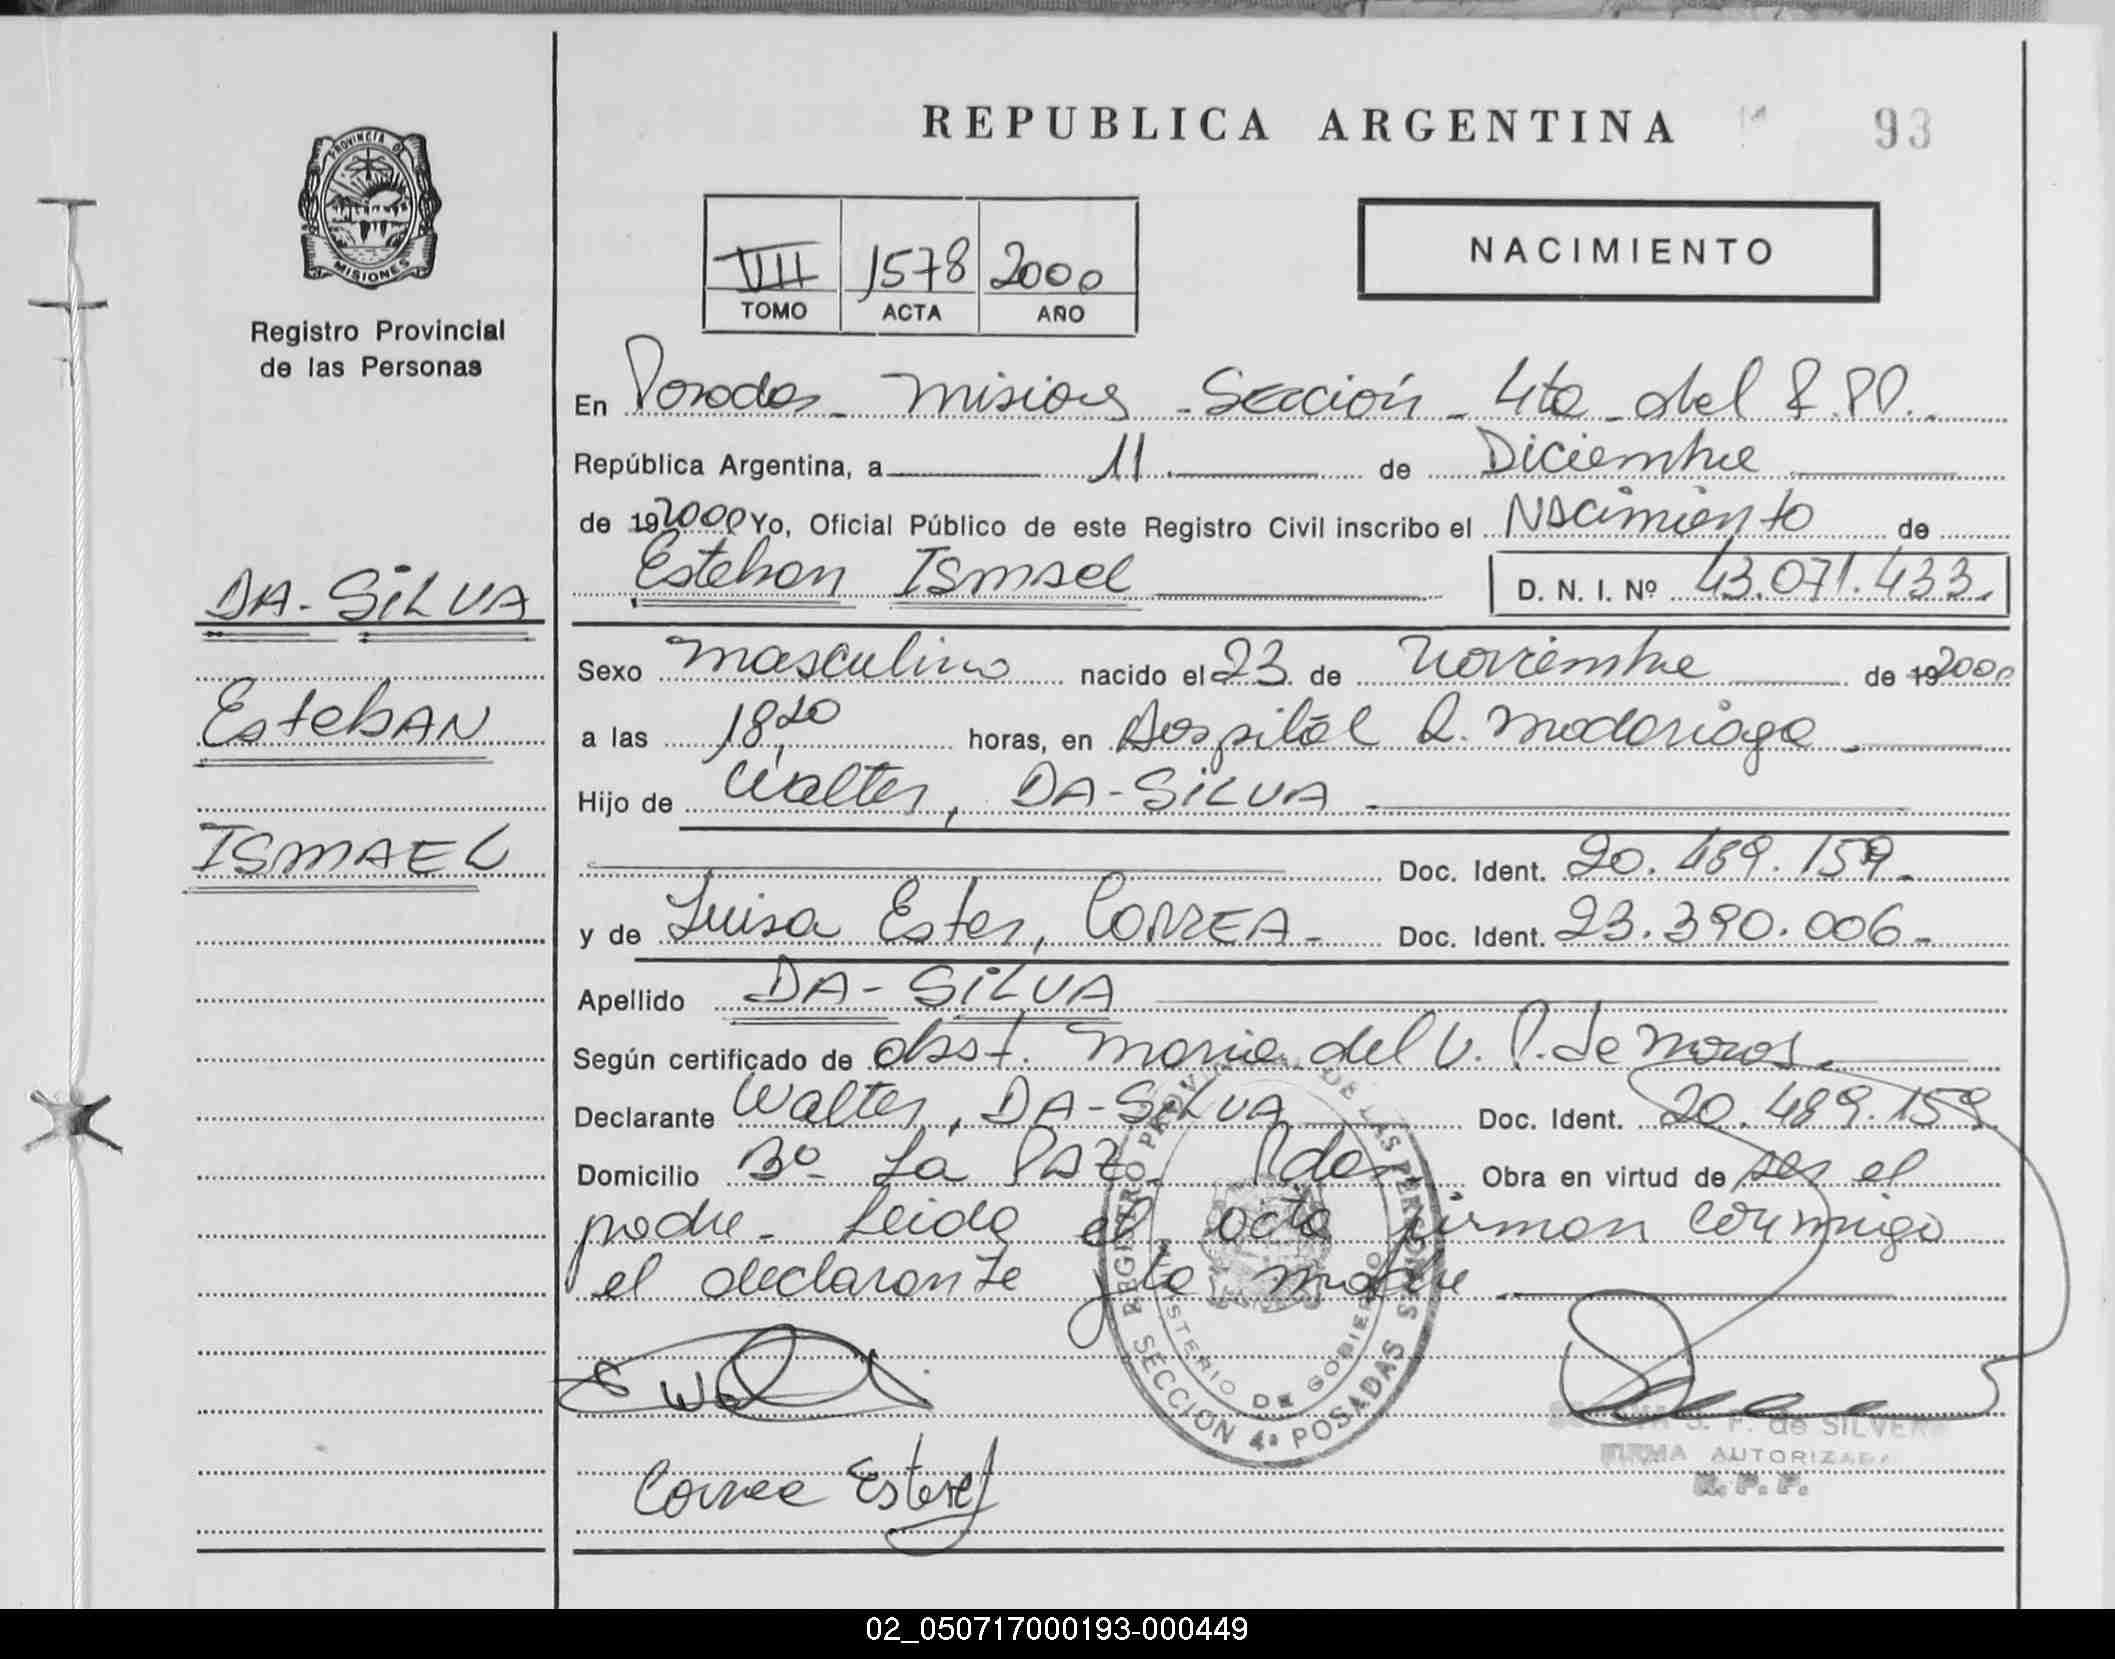 REPUBLICA ARGENTINA
93
PROVINCIA DE
MISIONES
Registro Provincial
de las Personas
VII 1578 2000
TOMO ACTA AÑO
NACIMIENTO
En Posadas - Misiones - Sección - 4ta - del R.P.P.
República Argentina, a 11 de Diciembre
de 192000 Yo, Oficial Público de este Registro Civil inscribo el Nacimiento de
Esteban Ismael D. N. I. Nº 43.071.433.
DA-SILVA
Esteban
ISMAEL
Sexo masculino nacido el 23 de noviembre de 192000
a las 18,20 horas, en Hospital R. Madariaga -
Hijo de Walter, DA-SILVA
Doc. Ident. 20.489.159.
y de Luisa Ester, CORREA - Doc. Ident. 23.390.006-
Apellido DA-SILVA
Según certificado de obst. Maria del V. P. de
Declarante Walter, DA-SILVA Doc. Ident. 20.489.159
Domicilio Bº La PAZ. Pdas Obra en virtud de ser el
padre - Leida el acta firman conmigo
el declarante y la madre
REGISTRO PROVINCIAL DE LAS PERSONAS
MINISTERIO DE GOBIERNO
SECCION 4ª POSADAS
Correa Ester
S. F. de SILVERA
FIRMA AUTORIZADA
R. P. P.
02_050717000193-000449